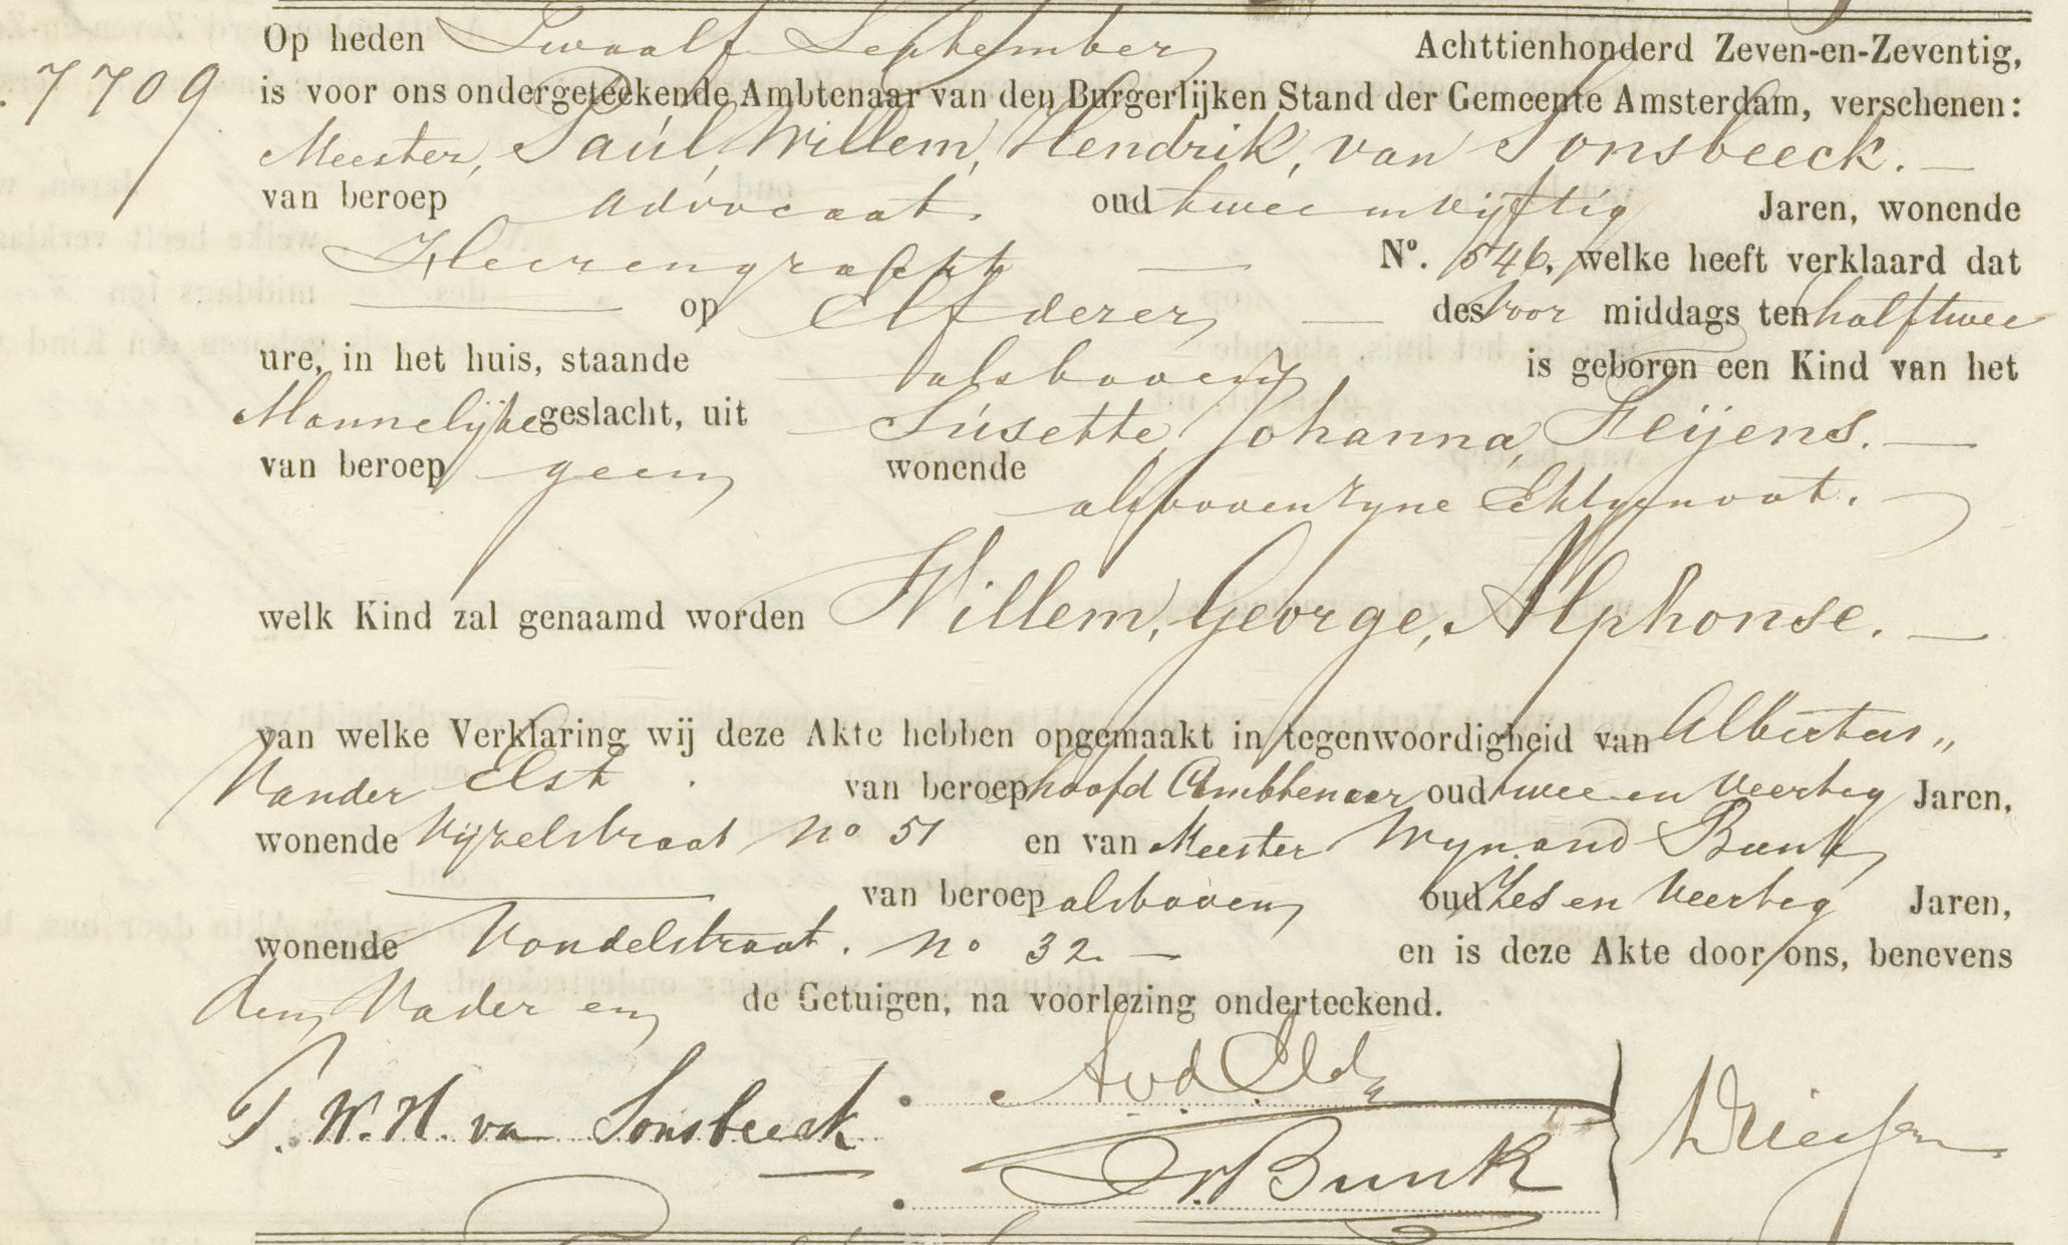 Op heden Twaalf September Achttienhonderd Zeven-en-Zeventig,
7709 is voor ons ondergeteekende Ambtenaar van den Burgerlijken Stand der Gemeente Amsterdam, verschenen:
Meester, Paul, Willem, Hendrik, van Sonsbeeck. —
van beroep advocaat. oud twee en vijftig Jaren, wonende
Heerengracht — No. 546, welke heeft verklaard dat
— op Elf dezer — des voor middags ten half twee
ure, in het huis, staande als boven is geboren een Kind van het
Mannelijke geslacht, uit Susette, Johanna, Feijens. —
van beroep geen wonende
als boven zyne Echtgenoot. —
welk Kind zal genaamd worden Willem, George, Alphonse. —
van welke Verklaring wij deze Akte hebben opgemaakt in tegenwoordigheid van Albertus „
Vander Elst. van beroep hoofd Ambtenaar oud twee en Veertig Jaren,
wonende Vijzelstraat No 51 en van Meester Wynand Bunk
— van beroep als boven oud Zes en Veertig Jaren,
wonende Vondelstraat. No 32. — en is deze Akte door ons, benevens
den Vader en de Getuigen, na voorlezing onderteekend.
P. W. H. van Sonsbeeck. AvdElst
Bunk